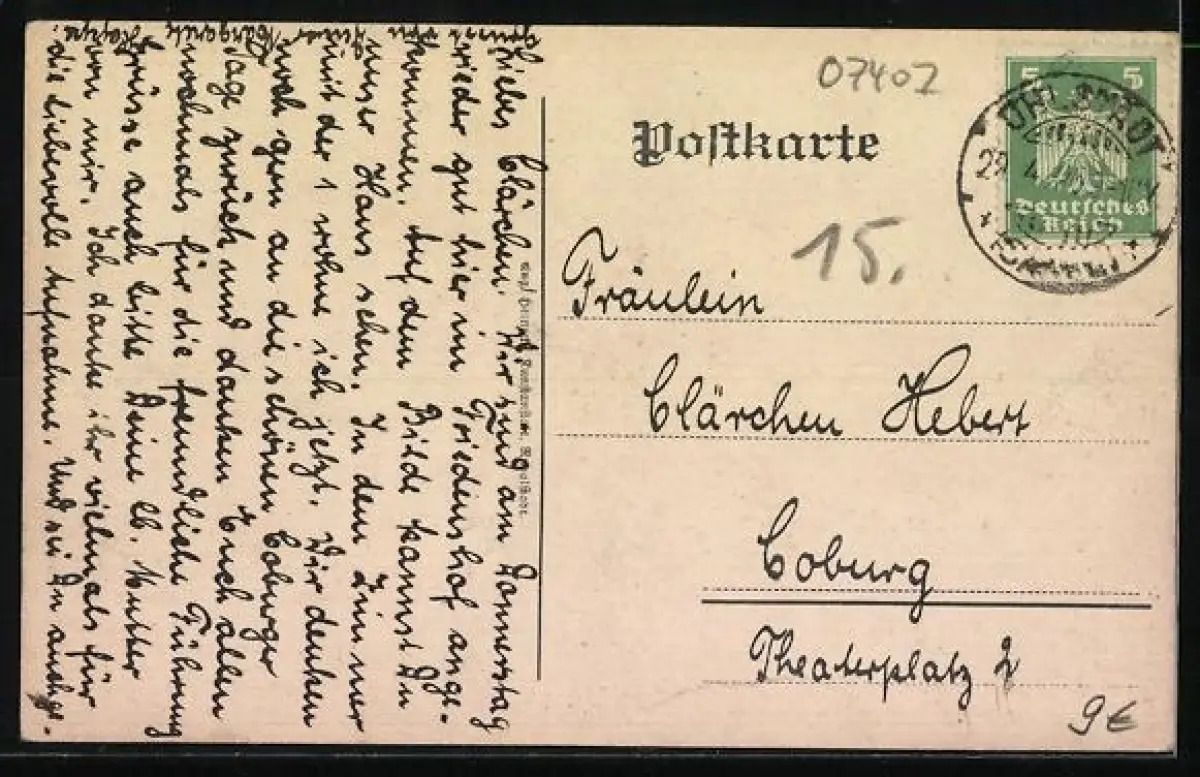 07402
Postkarte
5 5
Deutsches
Reich
UHLSTÄDT
15.
Fräulein
Clärchen Hebert
Coburg
Theaterplatz 2
9€
Liebes Clärchen. Wir sind am Donnerstag
wieder gut hier im Friedenshof ange-
kommen. Auf dem Bilde kannst Du
unser Haus sehen. In dem Zimmer
mit der 1 wohne ich jetzt. Wir denken
noch gern an die schönen Coburger
Tage zurück und danken Euch allen
nochmals für die freundliche Führung
Grüsse auch bitte Deine lb. Mutter
von mir. Ich danke ihr vielmals für
die liebevolle Aufnahme. Und sei Du auch ge-
grüsst von Deiner Margarete